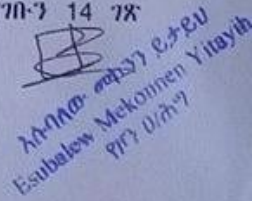 ገቡን 14 ገጽ
አሱባለው መኮንን ይታይህ
Esubalew Mekonnen Yitayih
የቡድን